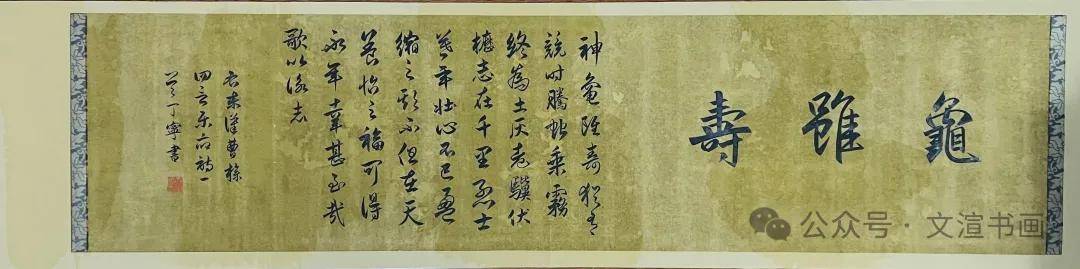 龜雖壽
神龜雖壽猶有
競时騰蛇乘霧
終為土灰老驥伏
櫪志在千里烈士
暮年壯心不已盈
縮之期不但在天
養怡之福可得
永年幸甚至哉
歌以詠志
右東漢曹操
四言樂府詩一
首丁寧書
公众号·文渲书画